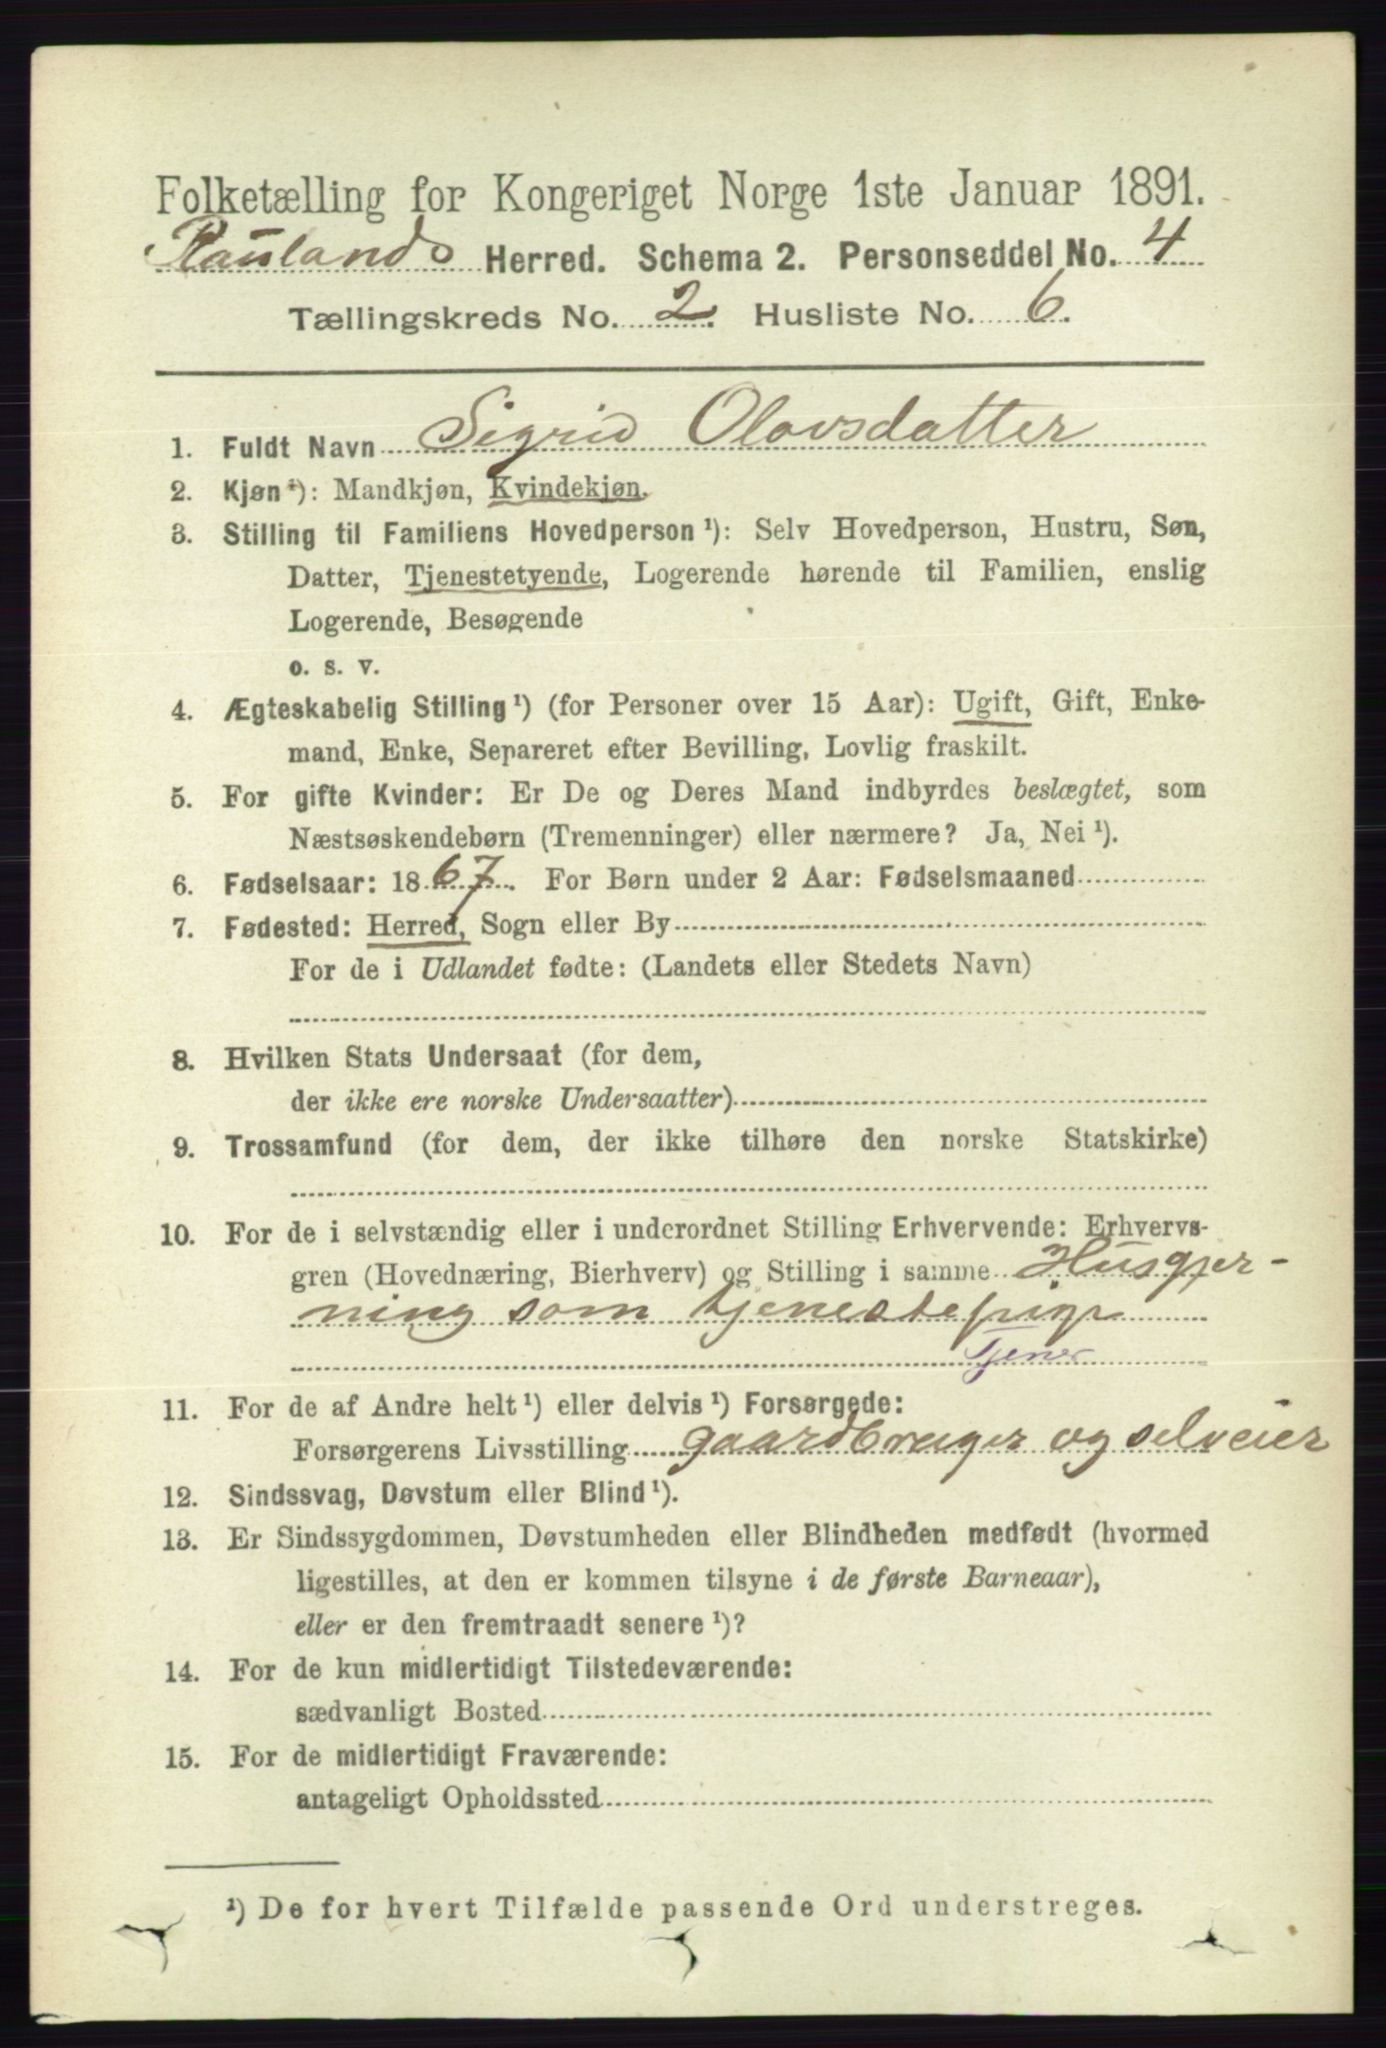 Folketælling for Kongeriget Norge 1ste Januar 1891.
Raulands Herred. Schema 2. Personseddel No. 4
Tællingskreds No. 2. Husliste No. 6.
1. Fuldt Navn Sigrid Olovsdatter
2. Kjøn*): Mandkjøn, Kvindekjøn.
3. Stilling til Familiens Hovedperson¹): Selv Hovedperson, Hustru, Søn,
Datter, Tjenestetyende, Logerende hørende til Familien, enslig
Logerende, Besøgende
o. s. v.
4. Ægteskabelig Stilling¹) (for Personer over 15 Aar): Ugift, Gift, Enke-
mand, Enke, Separeret efter Bevilling, Lovlig fraskilt.
5. For gifte Kvinder: Er De og Deres Mand indbyrdes beslægtet, som
Næstsøskendebørn (Tremenninger) eller nærmere? Ja, Nei¹).
6. Fødselsaar: 1867. For Børn under 2 Aar: Fødselsmaaned
7. Fødested: Herred, Sogn eller By
For de i Udlandet fødte: (Landets eller Stedets Navn)
8. Hvilken Stats Undersaat (for dem,
der ikke ere norske Undersaatter)
9. Trossamfund (for dem, der ikke tilhøre den norske Statskirke)
10. For de i selvstændig eller i underordnet Stilling Erhvervende: Erhvervs-
gren (Hovednæring, Bierhverv) og Stilling i samme Husgjer-
ning som tjenestepige
Tjener
11. For de af Andre helt¹) eller delvis¹) Forsørgede:
Forsørgerens Livsstilling gaardbruger og selveier
12. Sindssvag, Døvstum eller Blind¹).
13. Er Sindssygdommen, Døvstumheden eller Blindheden medfødt (hvormed
ligestilles, at den er kommen tilsyne i de første Barneaar),
eller er den fremtraadt senere¹)?
14. For de kun midlertidigt Tilstedeværende:
sædvanligt Bosted
15. For de midlertidigt Fraværende:
antageligt Opholdssted
¹) De for hvert Tilfælde passende Ord understreges.